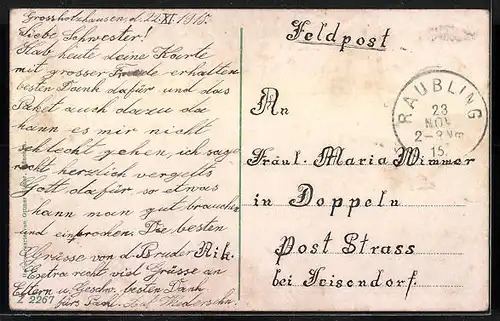 Grossholzhausen d. 22. XI. 1915.
Liebe Schwester!
Hab heute deine Karte
mit grosser Freude erhalten
besten Dank dafür und das
Paket auch dazu da
kann es mir nicht
schlecht gehen, ich sage
recht herzlich vergelts
Gott dafür, so etwas
kann man gut brauchen
und einbrocken. Die besten
Grüsse von d. Bruder Nik.
Extra recht viel Grüsse an
Eltern u. Geschw. besten Dank
fürs Pack. Auf Wiedersehn.
2267
Feldpost
RAUBLING
23
NOV
2-3 Nm
15.
An
Fräul. Maria Wimmer
in Doppeln
Post Strass
bei Teisendorf.